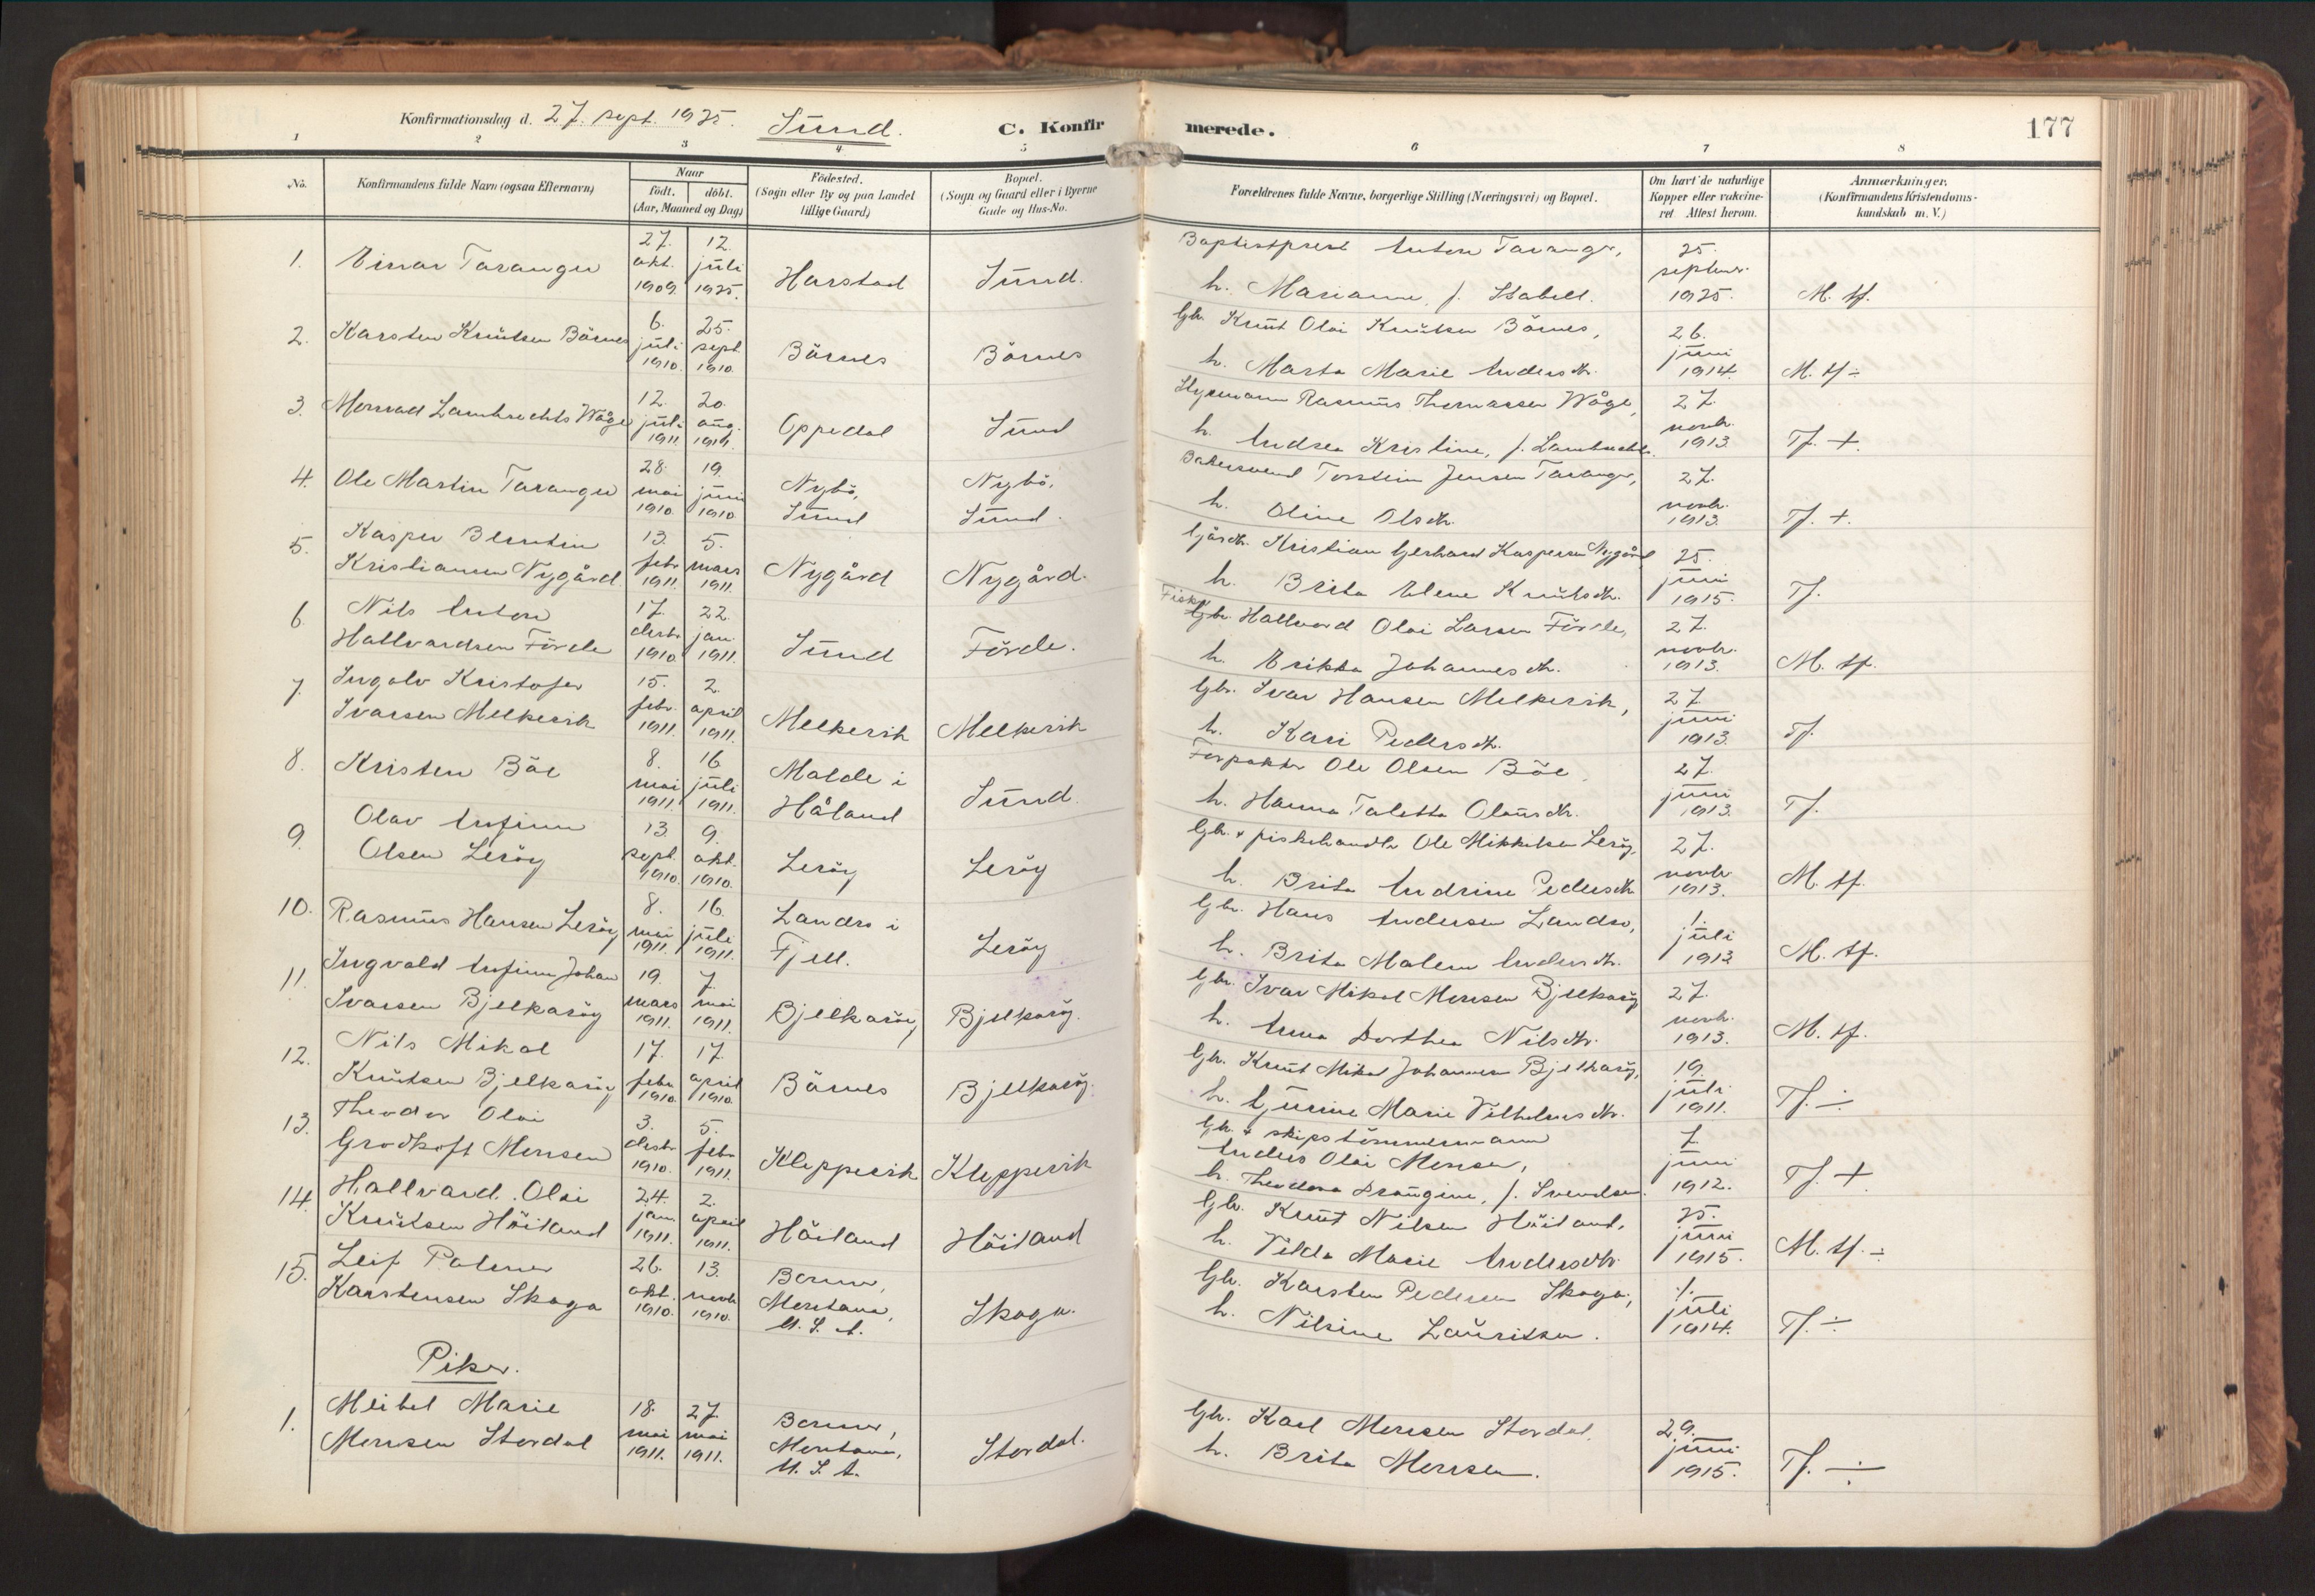 Konfirmationsdag d. 27. sept. 1925. Sund. C. Konfirmerede. 177
1 2 3 4 5 6 7 8
No. Konfirmandens fulde Navn (ogsaa Efternavn) Naar født. døbt. (Aar, Maaned og Dag) Födested. (Sogn eller By og paa Landet tillige Gaard) Bopæl. (Sogn og Gaard eller i Byerne Gade og Hus-No. Forældrenes fulde Navne, borgerlige Stilling (Næringsvei) og Bopæl. Om havt de naturlige Kopper eller vakcineret Attest herom. Anmærkninger. (Konfirmandens Kristendomskundskab m. V.)
1. Einar Taranger 27. okt. 1909. 12. juli 1925. Harstad Sund. Baptistprest Anton Taranger, h. Marianne, f. Stabell. 25. septembr. 1925. M. tf.
2. Karsten Knutsen Börnes 6. juli 1910. 25. sept. 1910. Börnes Börnes Gbr. Knut Olai Knutsen Börnes, h. Marta Marie Andersdtr. 26. juni 1914. M. tf ÷
3. Monrad Lambrechts Wåge 12. juli 1911. 20. aug. 1911. Oppedal Sund Styrmann Rasmus Thomassen Wåge, h. Andrea Kristine, f. Lambrechts. 27. novbr. 1913. Tf. +.
4. Ole Martin Taranger 28. mai 1910. 19. juni 1910. Nybö, Sund Nybö, Sund. Bakersvend Torstein Jensen Taranger, h. Oline Olsdtr. 27. novbr. 1913. Tf. +.
5. Kasper Blentin Kristiansen Nygård 13. febr. 1911. 5. mars 1911. Nygård Nygård. Gårdbr. Kristian Gerhard Kaspersen Nygård h. Brita Elene Knutsdtr. 25. juni 1915. Tf.
6. Nils Anton Hallvardsen Förde 17. desbr. 1910. 22. jan. 1911. Sund Förde. Fisk. Gbr. Hallvard Olai Larsen Förde, h. Erikka Johannesdtr. 27. novbr. 1913. M. tf.
7. Ingolv Kristofer Ivarsen Melkevik 15. febr. 1911. 2. april 1911. Melkevik Melkevik Gbr. Ivar Hansen Melkevik, h. Kari Pedersdtr. 27. juni 1913. Tf.
8. Kristen Böe 8. mai 1911. 16. juli 1911. Malde i Håland Sund. Forpakter Ole Olsen Böe, h. Hanna Taletta Olausdtr. 27. juni 1913. Tf.
9. Olav Anfinn Olsen Leröy 13. sept. 1910. 9. okt. 1910. Leröy Leröy Gbr. + fiskehandler Ole Mikkelsen Leröy, h. Brita Andrine Pedersdtr. 27. novbr. 1913. M. tf.
10. Rasmus Hansen Leröy 8. mai 1911. 16. juli 1911. Landro i Fjell. Leröy Gbr. Hans Andersen Landro, h. Brita Malene Andersdtr. 1. juli 1913 M. tf.
11. Ingvald Anfinn Johan Ivarsen Bjelkaröy 19. mars 1911. 7. mai 1911. Bjelkaröy Bjelkaröy. Gbr. Ivar Mikal Monsen Bjelkaröy h. Anna Dorthea Nilsdtr. 27. novbr. 1913. M. tf.
12. Nils Mikal Knutsen Bjelkaröy 17. febr. 1910. 17. april 1910. Börnes Bjelkaröy. Gbr. Knut Mikal Johannesen Bjelkaröy, h. Gjurine Marie Vilhelmsdtr. 19. juli 1911. Tf. ÷
13. Theodor Olai Grodkoft Monsen 3. desbr. 1910. 5. febr. 1911. Kleppevik Kleppevik Gbr. + skipstömmermann Anders Olai Monsen, h. Theodora Draugine, f. Svendsen. 7. juni 1912. Tf. +
14. Hallvard Olai Knutsen Höiland 24. jan. 1911. 2. april 1911. Höiland Höiland Gbr. Knut Nilsen Höiland, h. Velda Marie Andersdtr. 25. juni 1915. M. tf. ÷
15. Leif Palmer Karstensen Skoge 26. okt. 1910. 13. novbr. 1910. Bonner, Montana, U. S. A. Skoge. Gbr. Karsten Pedersen Skoge, h. Nilsine Lauritsen. 1. juli 1914. Tf. ÷
Piker.
1. Meibel Marie Monsen Stordal 18. mai 1911. 27. mai 1911. Bonner, Montana, U. S. A. Stordal. Gbr. Karl Monsen Stordal. h. Brita Monsen. 29. juni 1915. Tf. ÷